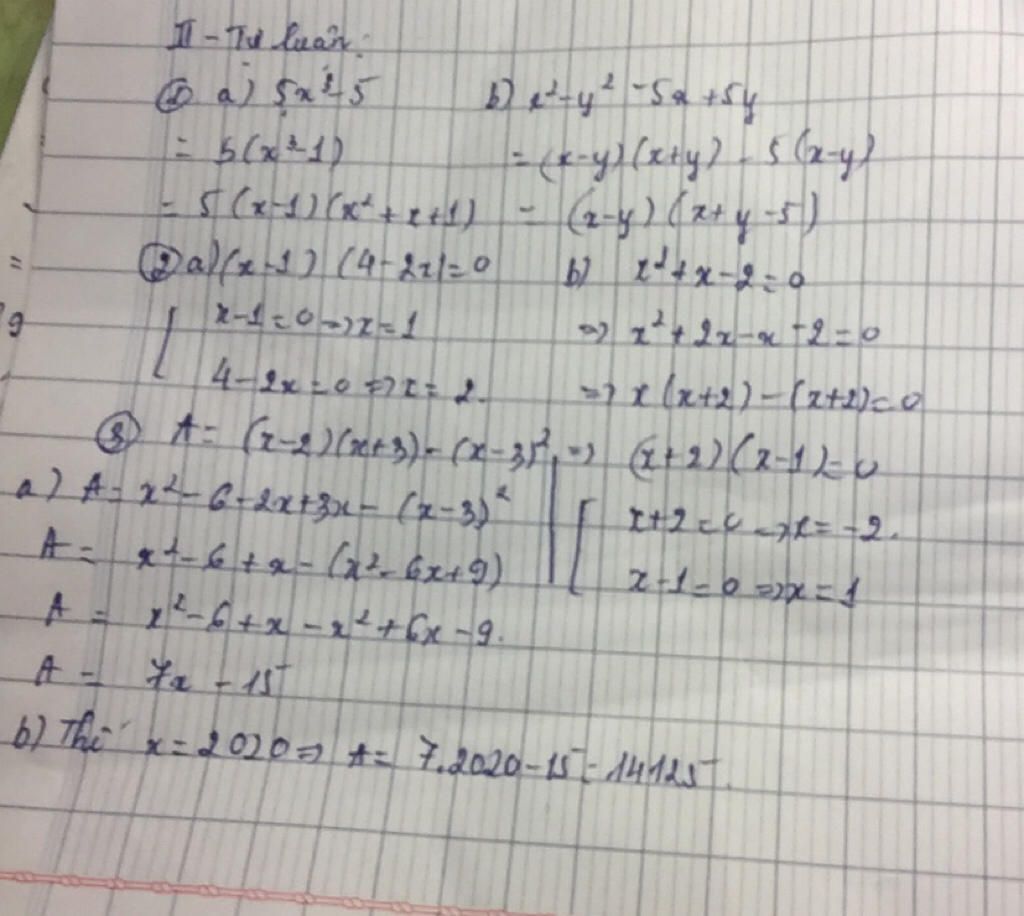 II - Tự luận:
① a) 5x³ - 5
= 5(x³ - 1)
= 5(x-1)(x² + x + 1)
b) x² - y² - 5x + 5y
= (x-y)(x+y) - 5(x-y)
= (x-y)(x+y-5)
② a) (x-1)(4-2x)=0
x-1=0 => x=1
4-2x=0 => x=2.
b) x²+x-2=0
=> x²+2x-x-2=0
=> x(x+2)-(x+2)=0
=> (x+2)(x-1)=0
x+2=0 => x=-2.
x-1=0 => x=1
③ A = (x-2)(x+3) - (x-3)²
a) A = x² - 6 - 2x + 3x - (x-3)²
A = x² - 6 + x - (x² - 6x + 9)
A = x² - 6 + x - x² + 6x - 9.
A = 7x - 15
b) x = 2020 => A = 7.2020 - 15 = 14125.